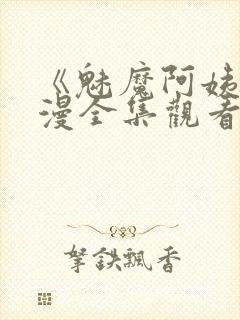 《魅魔阿姊
漫全集觀看
拏鉄飄香